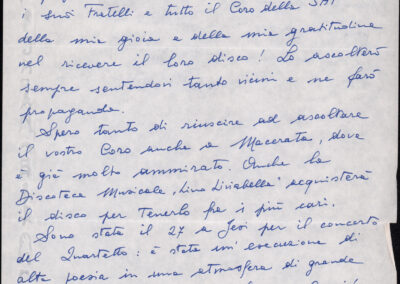 i suoi Fratelli e tutto il Coro della SAT
della mia gioia e della mia gratitudine
nel ricevere il loro disco! Lo ascolterò
sempre sentendovi tanto vicini e ne farò
propaganda.
Spero tanto di riuscire ad ascoltare
il vostro Coro anche a Macerata, dove
è già molto ammirato. Anche la
Discoteca Musicale "Lino Liviabella" acquisterà
il disco per tenerlo fra i più cari.
Sono stata il 27 a Jesi per il concerto
del Quartetto: è stata un'esecuzione di
alta poesia in una atmosfera di grande